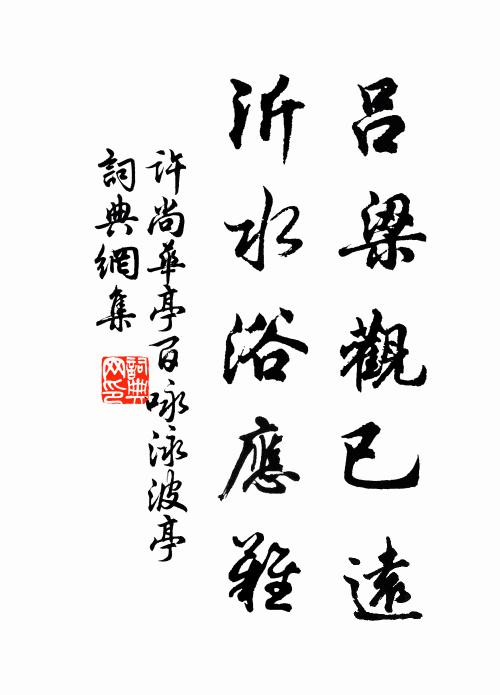 吕梁觀已遠
沂水浴應難
許尚華亭百咏泳波亭
詞典網集
詞典網印